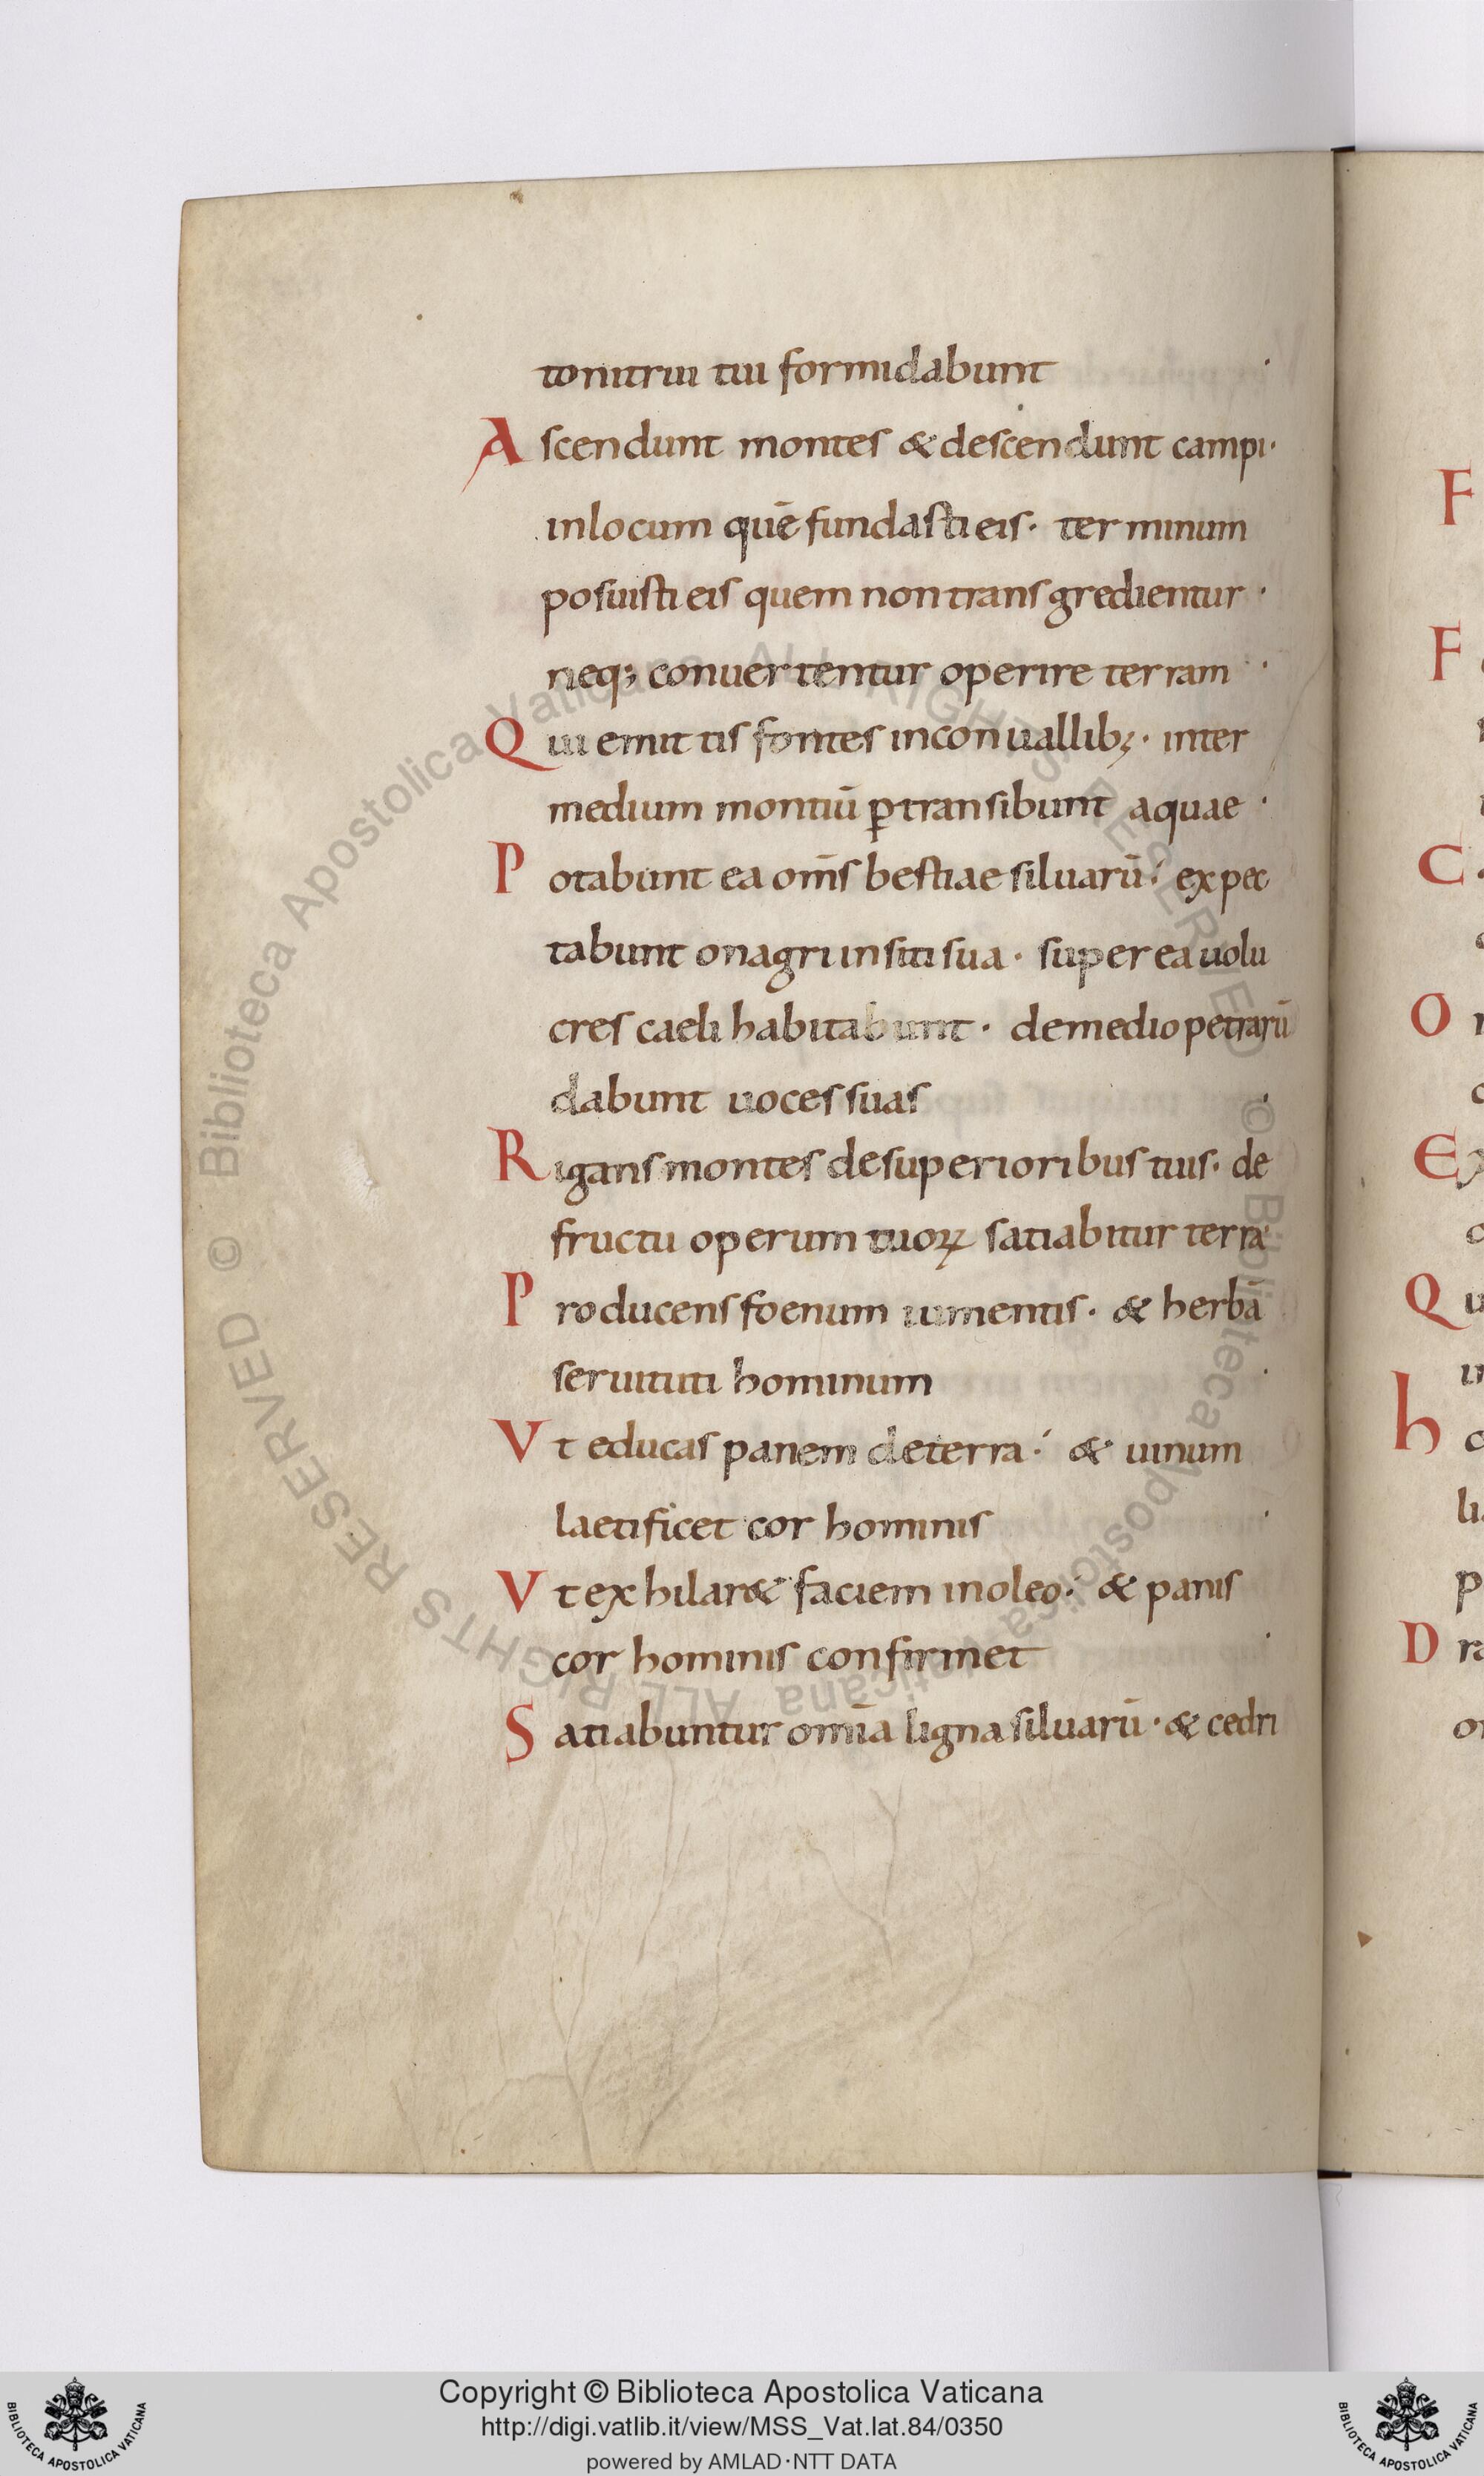 tonitrui tui formidabunt
Ascendunt montes & descendunt campi·
inlocum quē fundasti eis· terminum
posuisti eis quem non transgredientur·
neq; conuertentur operire terram·
Qui emittis fontes inconuallibꝫ· inter
medium montiū ꝑtransibunt aquae·
Potabunt ea om̄s bestiae siluarū· expec
tabunt onagri insiti sua· super ea uolu
cres caeli habitabunt· demedio petrarū
dabunt uoces suas·
Rigans montes desuperioribus tuis· de
fructu operum tuoꝝ satiabitur terra·
Producens foenum iumentis· & herbā
seruituti hominum·
Vt educas panem deterra· & uinum
laetificet cor hominis·
Vt exhilar& faciem inoleo· & panis
cor hominis confirmet·
Satiabuntur omīa ligna siluarū· & cedri
F
F
C
O
Ex
Qu
h
li
p
D ra
Copyright © Biblioteca Apostolica Vaticana
http://digi.vatlib.it/view/MSS_Vat.lat.84/0350
powered by AMLAD·NTT DATA
BIBLIOTECA APOSTOLICA VATICANA
BIBLIOTECA APOSTOLICA VATICANA
© Biblioteca Apostolica Vaticana ALL RIGHTS RESERVED
© Biblioteca Apostolica Vaticana ALL RIGHTS RESERVED